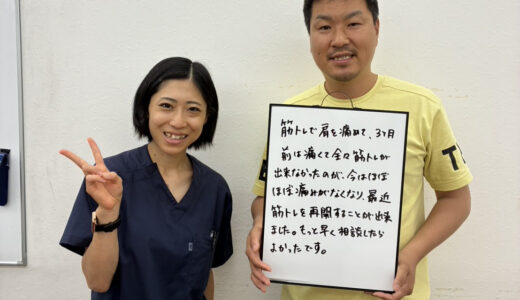 筋トレで肩を痛めて、3ヶ月
前は痛くて全々筋トレが
出来なかったのが、今はほぼ
ほぼ痛みがなくなり、最近
筋トレを再開することが出来
ました。もっと早く相談したら
よかったです。